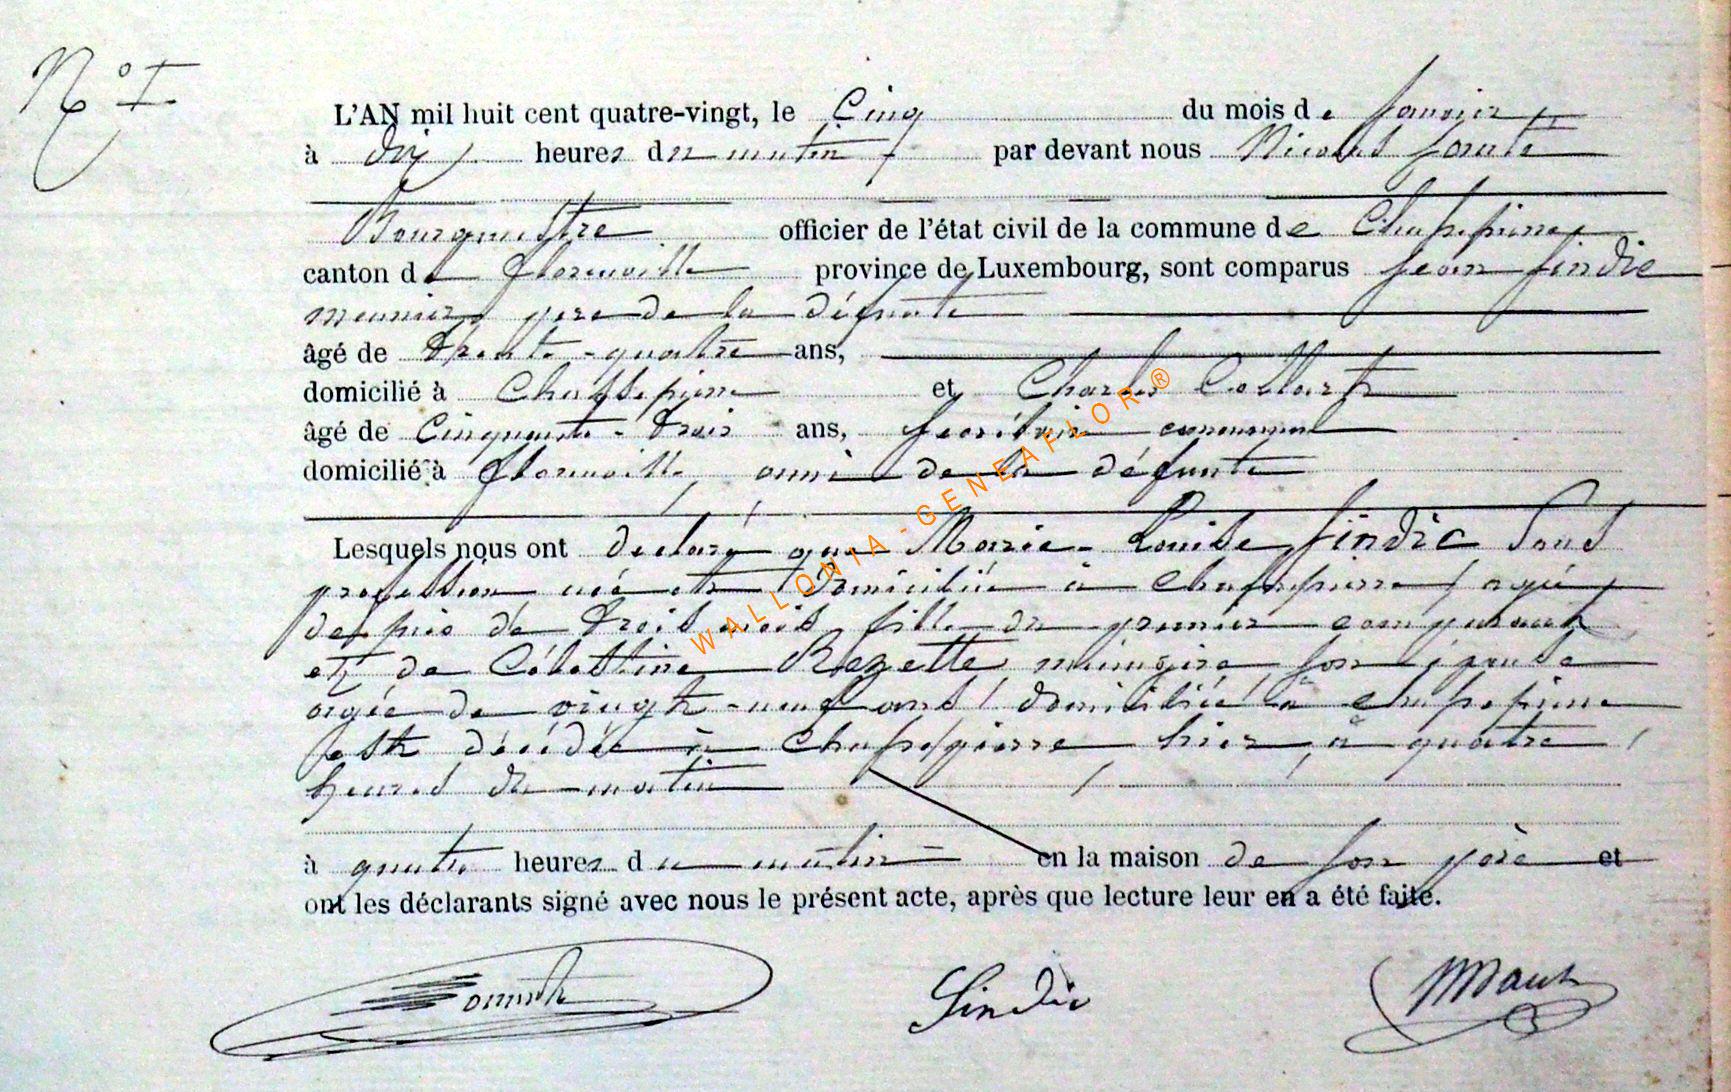 N° I
L'AN mil huit cent quatre-vingt, le Cinq du mois de Janvier
à dix heures du matin par devant nous Nicolas
Bourgmestre officier de l'état civil de la commune de Chassepierre
canton de Florenville province de Luxembourg, sont comparus Jean Sindic
meunier, père de la défunte
âgé de trente-quatre ans,
domicilié à Chassepierre et Charles Collart
âgé de Cinquante-trois ans, Secrétaire communal
domicilié à Florenville, ami de la défunte
Lesquels nous ont déclaré que Marie-Louise Sindic Sans
profession née et domiciliée à Chassepierre, agée
de trois mois fille du premier comparant
et de Célestine Rezette, ménagère, son épouse
agée de vingt-neuf ans, domiciliée à Chassepierre
est décédée à Chassepierre, hier, à quatre
heures du matin
à quatre heures du matin en la maison de son père et
ont les déclarants signé avec nous le présent acte, après que lecture leur en a été faite.
Sindic
WALLONIA-GENEAFLOR ®